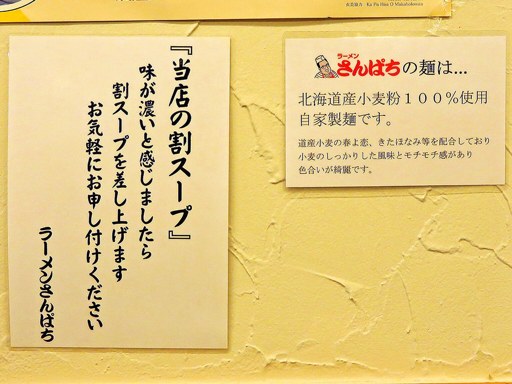 『当店の割スープ』
味が濃いと感じましたら
割スープを差し上げます
お気軽にお申し付けください
ラーメンさんぱち
ラーメン
さんぱちの麺は...
北海道産小麦粉１００％使用
自家製麺です。
道産小麦の春よ恋、きたほなみ等を配合しており
小麦のしっかりした風味とモチモチ感があり
色合いが綺麗です。